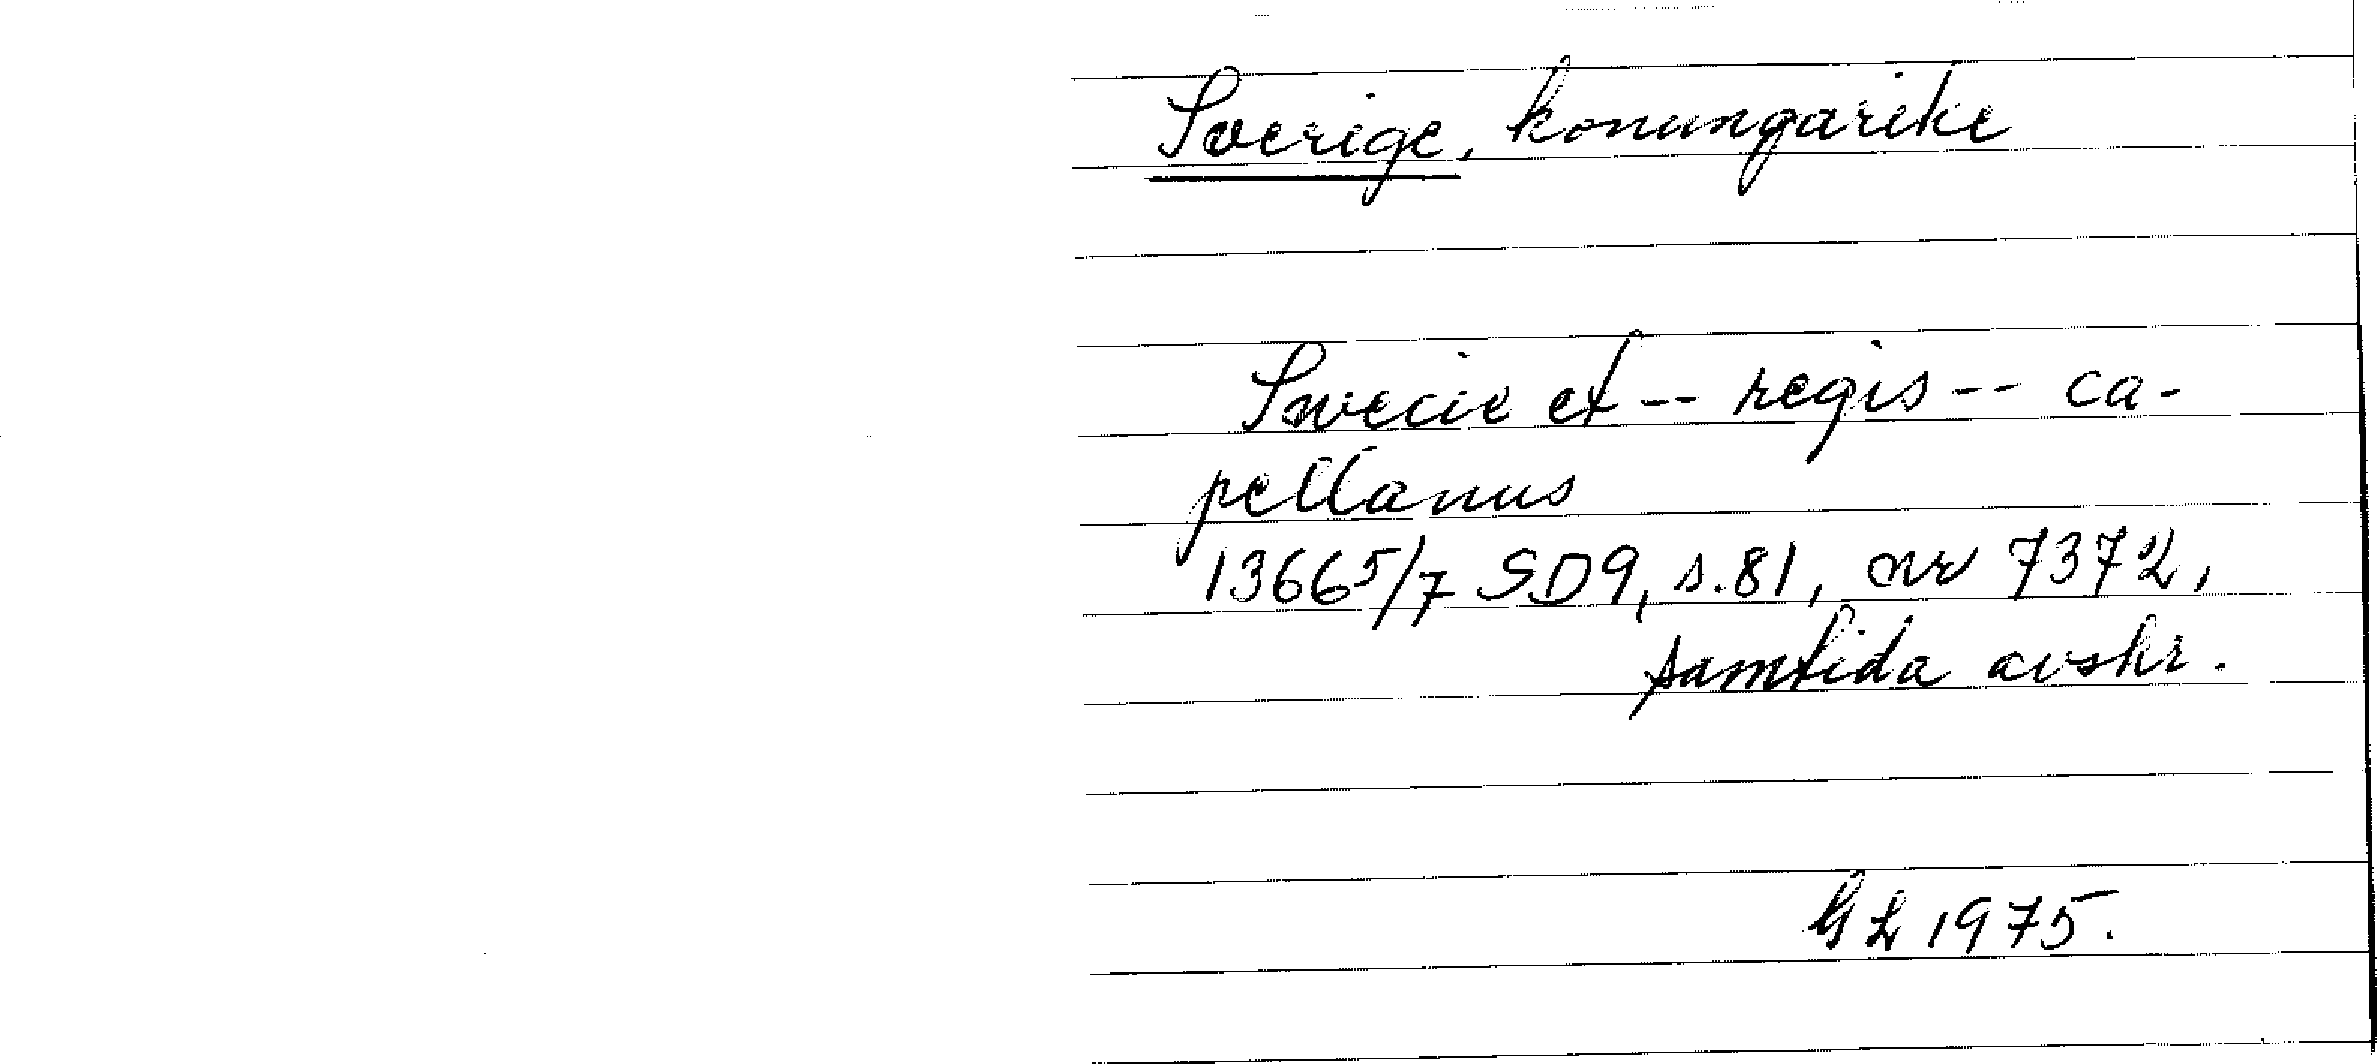 Sverige, konungarike
Swecie et -- regis -- ca-
pellanus
1366 5/7 SD9, s.81, nr 7372,
samtida avskr.
GL 1975.